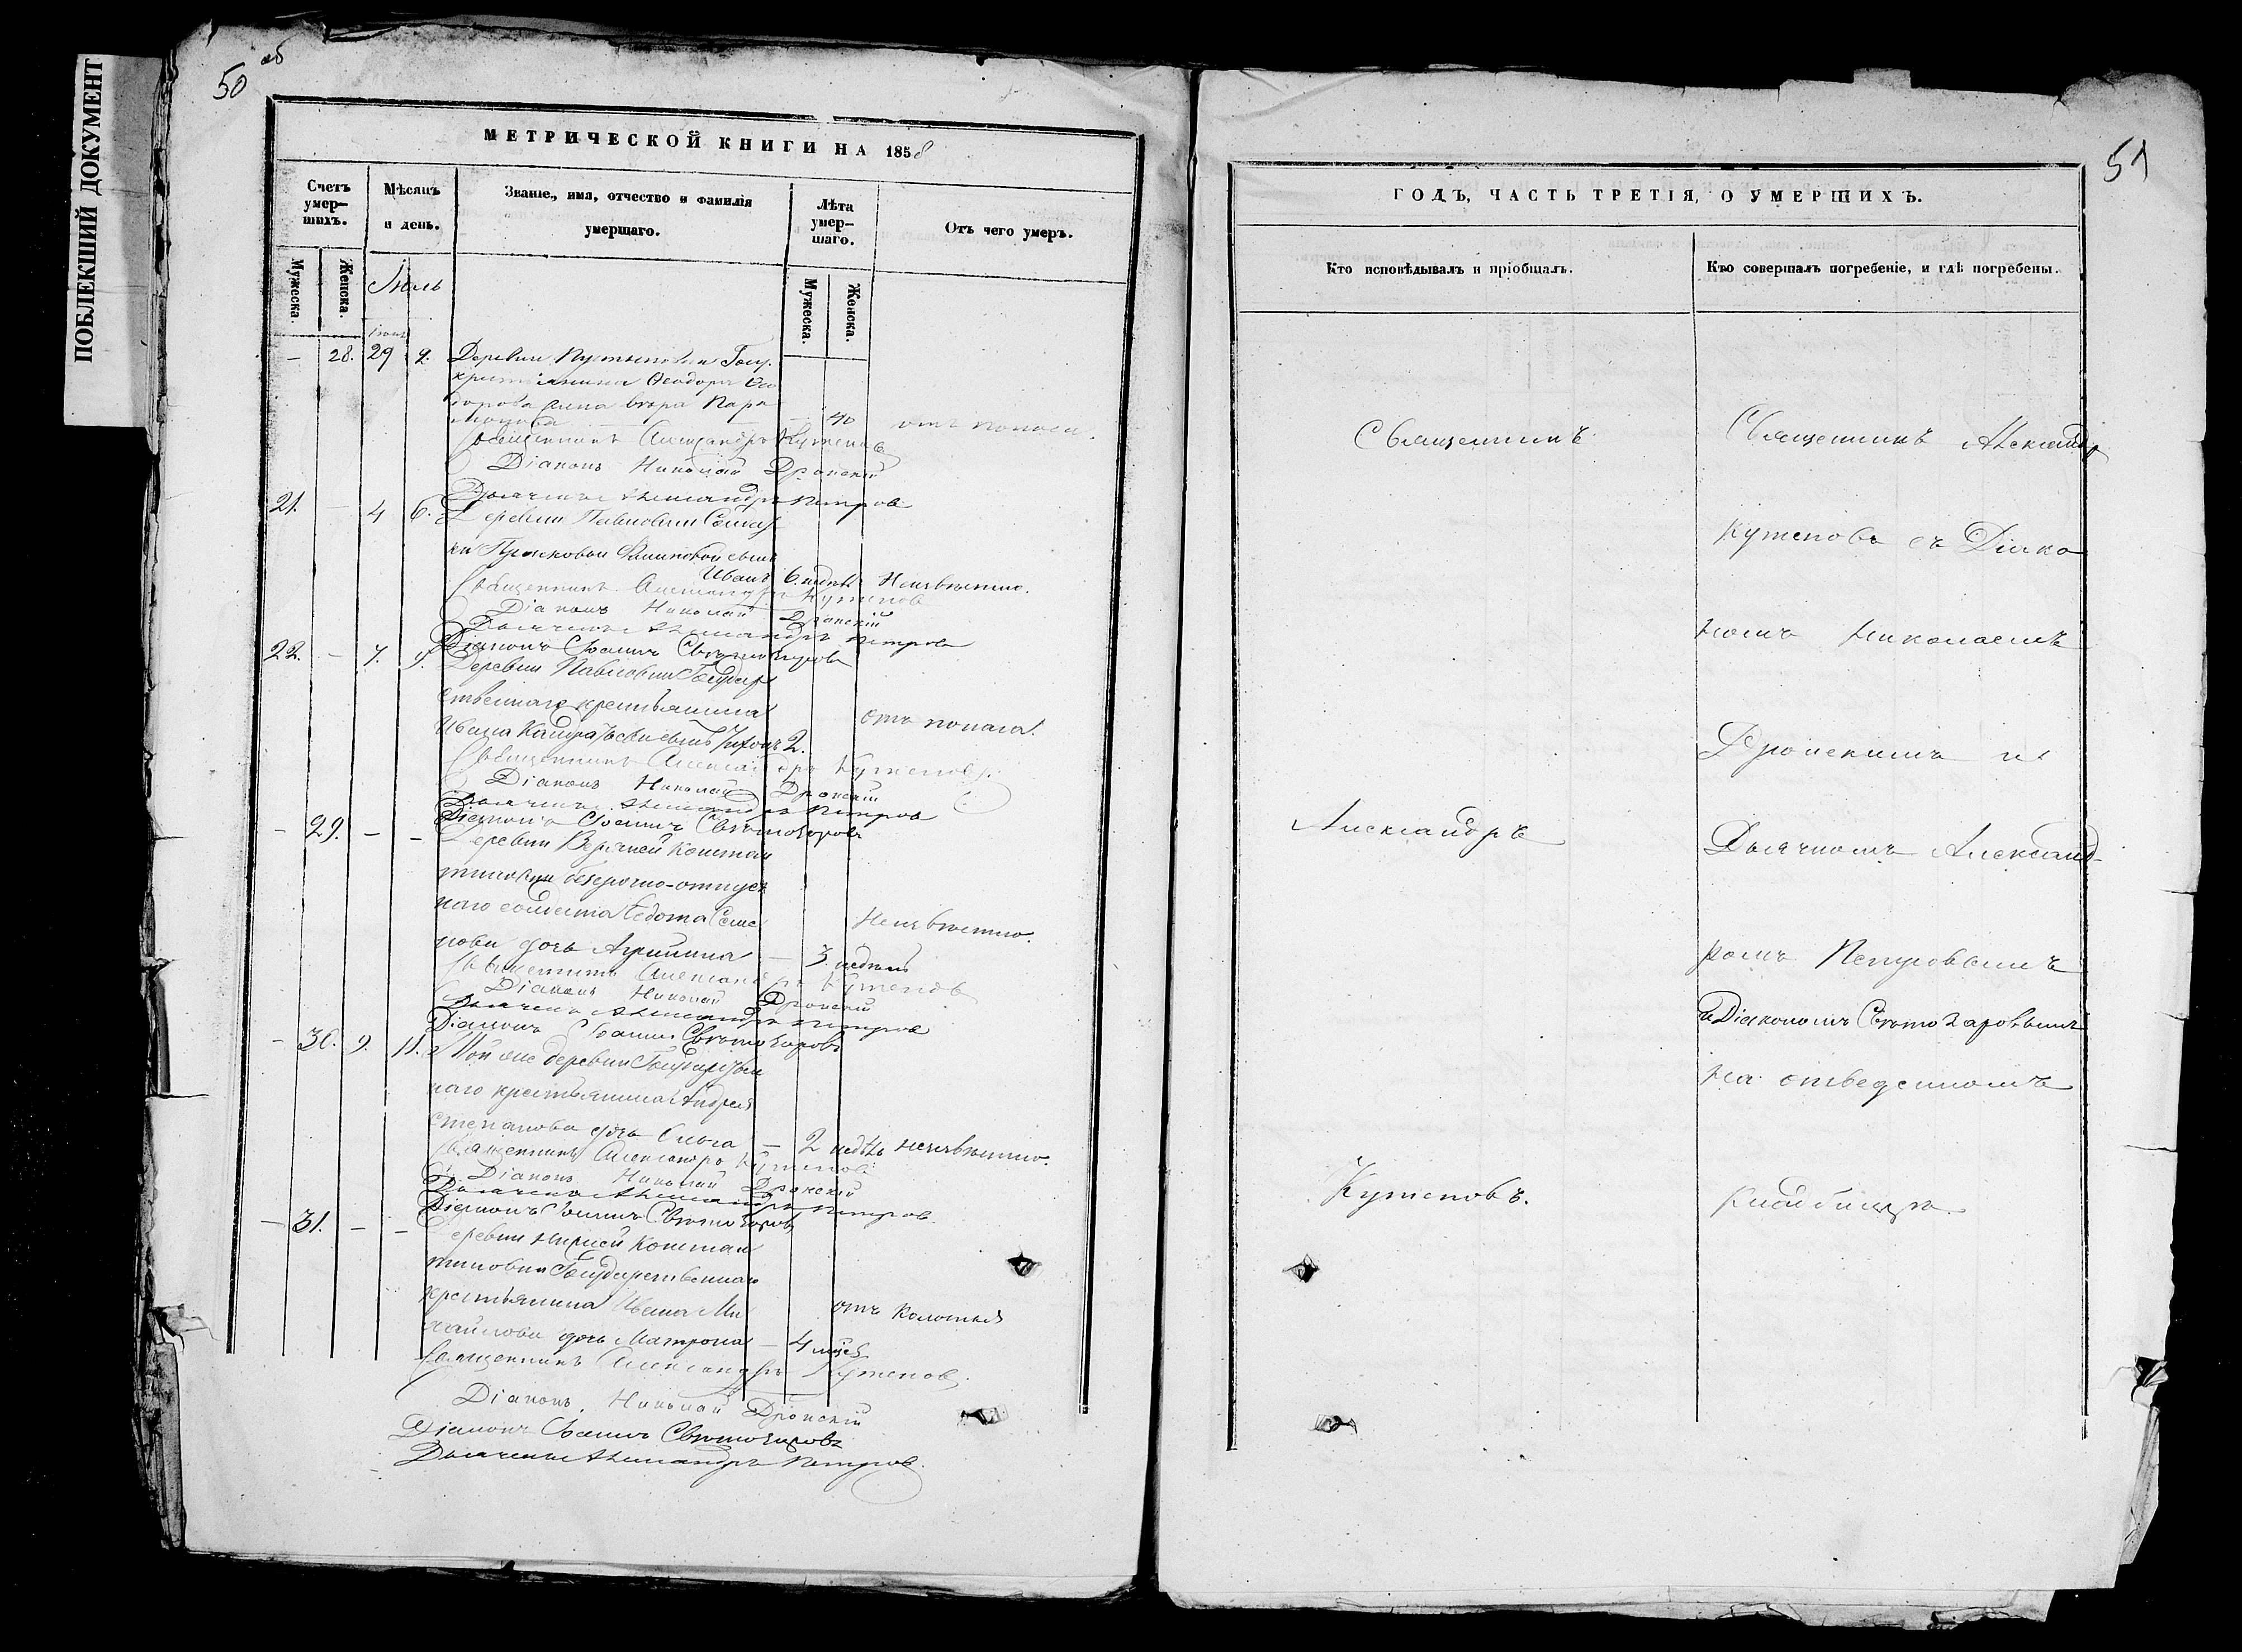 ПОБЛЕКШИЙ ДОКУМЕНТ
50 об
МЕТРИЧЕСКОЙ КНИГИ НА 1858
Счетъ умер-шихъ.
Мѣсяцъ и день.
Званіе, имя, отчество и фамилія умершаго.
Лѣта умер-шаго.
Отъ чего умеръ.
Мужеска.
Женска.
Іюль
Мужеска.
Женска.
— 28. 29
Деревни Госу.
крестьянина Ѳеодора Ѳео
дорова жена
40 отъ поноса.
Священникъ Александръ Кутеповъ
Діаконъ Николай Дронскій
Дьячекъ Александръ Петровъ
21. — 4 6. Деревни Павловки Солдат
ки сынъ
Иванъ 6. недѣль Неизвѣстно.
Священникъ Александръ Кутеповъ
Діаконъ Николай Дронскій
Дьячекъ Александръ Петровъ
Діаконъ Іоаннъ Свѣтозаровъ
22. — 7. 9. Деревни Павловки Государ
ственнаго крестьянина
Ивана сынъ 2. отъ поноса.
Священникъ Александръ Кутеповъ.
Діаконъ Николай Дронскій
Дьячекъ Александръ Петровъ
Діаконъ Іоаннъ Свѣтозаровъ
— 29. — — Деревни Верхней Констан
тиновки безсрочно-отпуск
наго солдата Федота Семе
нова дочь — 3 недѣль Неизвѣстно.
Священникъ Александръ Кутеповъ
Діаконъ Николай Дронскій
Дьячекъ Александръ Петровъ
Діаконъ Іоаннъ Свѣтозаровъ
— 30. 9. 11. Той же деревни Государствен
наго крестьянина Андрея
Степанова дочь Ольга — 2 недѣль неизвѣстно.
Священникъ Александръ Кутеповъ
Діаконъ Николай Дронскій
Дьячекъ Александръ Петровъ.
Діаконъ Іоаннъ Свѣтозаровъ
— 31. — — Деревни Нижней Констан
тиновки Государственнаго
крестьянина Ивана Ми
хайлова дочь Матрона — 4 отъ колотья
Священникъ Александръ Кутеповъ.
Діаконъ Николай Дронскій
Діаконъ Іоаннъ Свѣтозаровъ
Дьячекъ Александръ Петровъ.
51
ГОДЪ, ЧАСТЬ ТРЕТІЯ, О УМЕРШИХЪ.
Кто исповѣдывалъ и пріобщалъ.
Кто совершалъ погребеніе, и гдѣ погребены.
Священникъ
Александръ
Кутеповъ.
Священникъ Александр
Кутеповъ съ Діако
номъ Николаемъ
Дронскимъ и
Дьячкомъ Александ-
ромъ Петровымъ
и Діакономъ Свѣтозаровымъ
на отведенномъ
кладбищѣ.